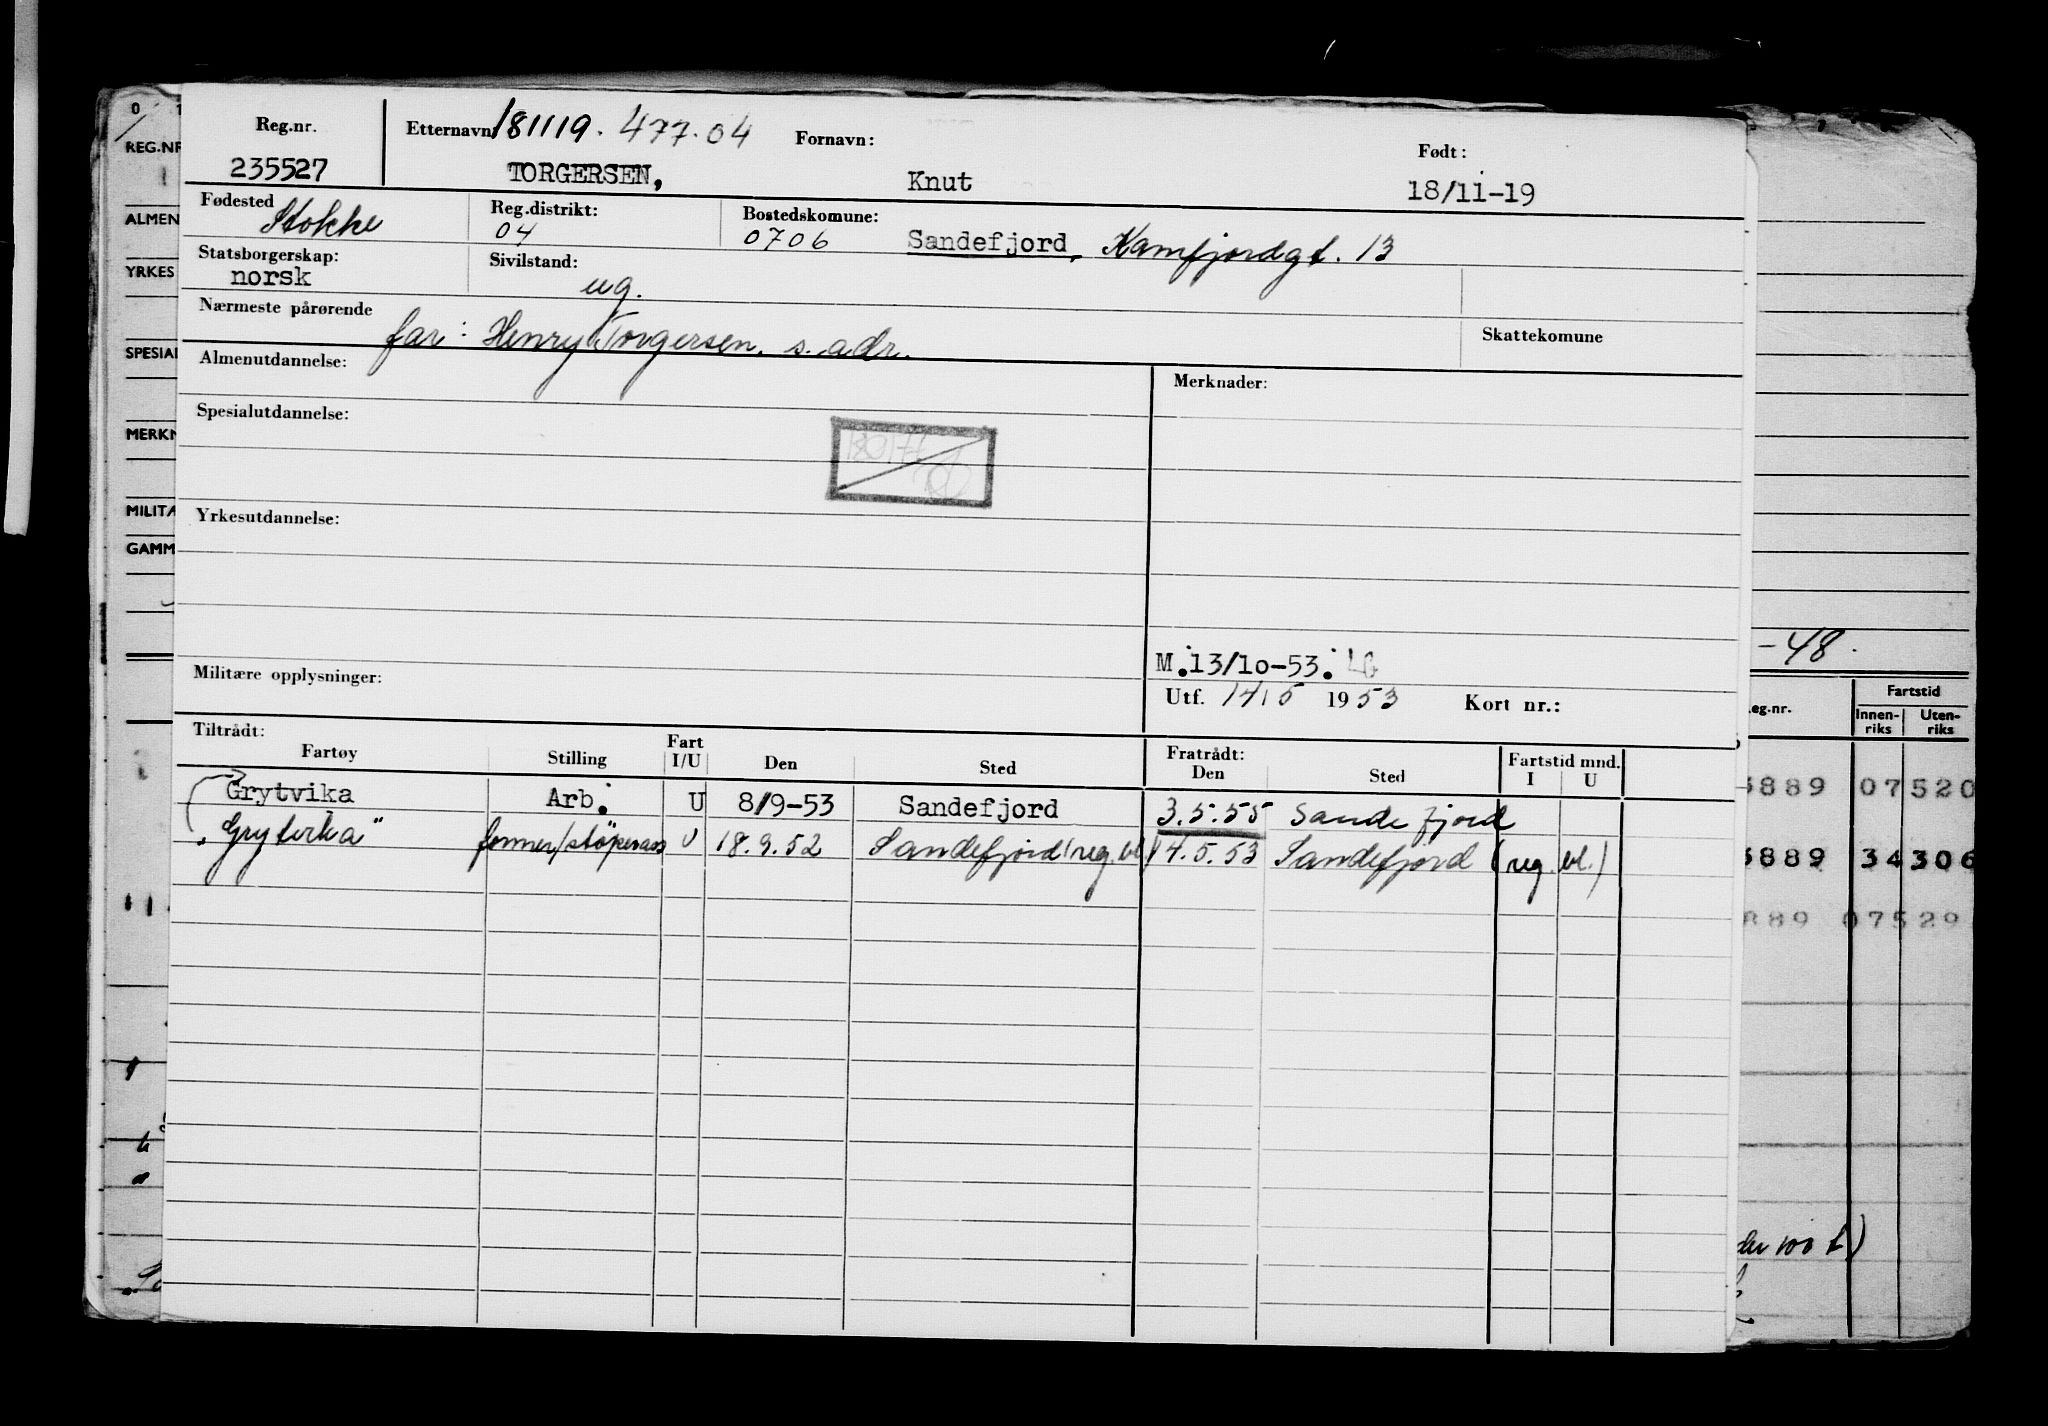 Reg.nr. Etternavn: 181119. 477.04 Fornavn: Født:
235527 TORGERSEN, Knut 18/11-19
Fødested Stokke Reg.distrikt: 04 Bostedskomune: 0706 Sandefjord, Kamfjordgt. 13
Statsborgerskap: norsk Sivilstand: ug.
Nærmeste pårørende far: Henry Torgersen. s. adr. Skattekomune
Almenutdannelse: Merknader:
Spesialutdannelse:
Yrkesutdannelse:
M.13/10-53.
Militære opplysninger: Utf. 14/5 1953 Kort nr.:
Tiltrådt: Fratrådt:
Fartøy Stilling Fart I/U Den Sted Den Sted Fartstid mnd. I U
Grytvika Arb. U 8/9-53 Sandefjord 3.5.55 Sandefjord
"Grytvika" former/støperass U 18.9.52 Sandefjord (reg. bl.) 14.5.53 Sandefjord (reg. bl.)
0 1
REG.NR
ALMEN
YRKES
SPESIAL
MERKN
MILITÆ
GAMM
-48.
eg.nr. Fartstid
Innen-riks Uten-riks
8889 07 520
8889 34 306
889 07529
100 t)